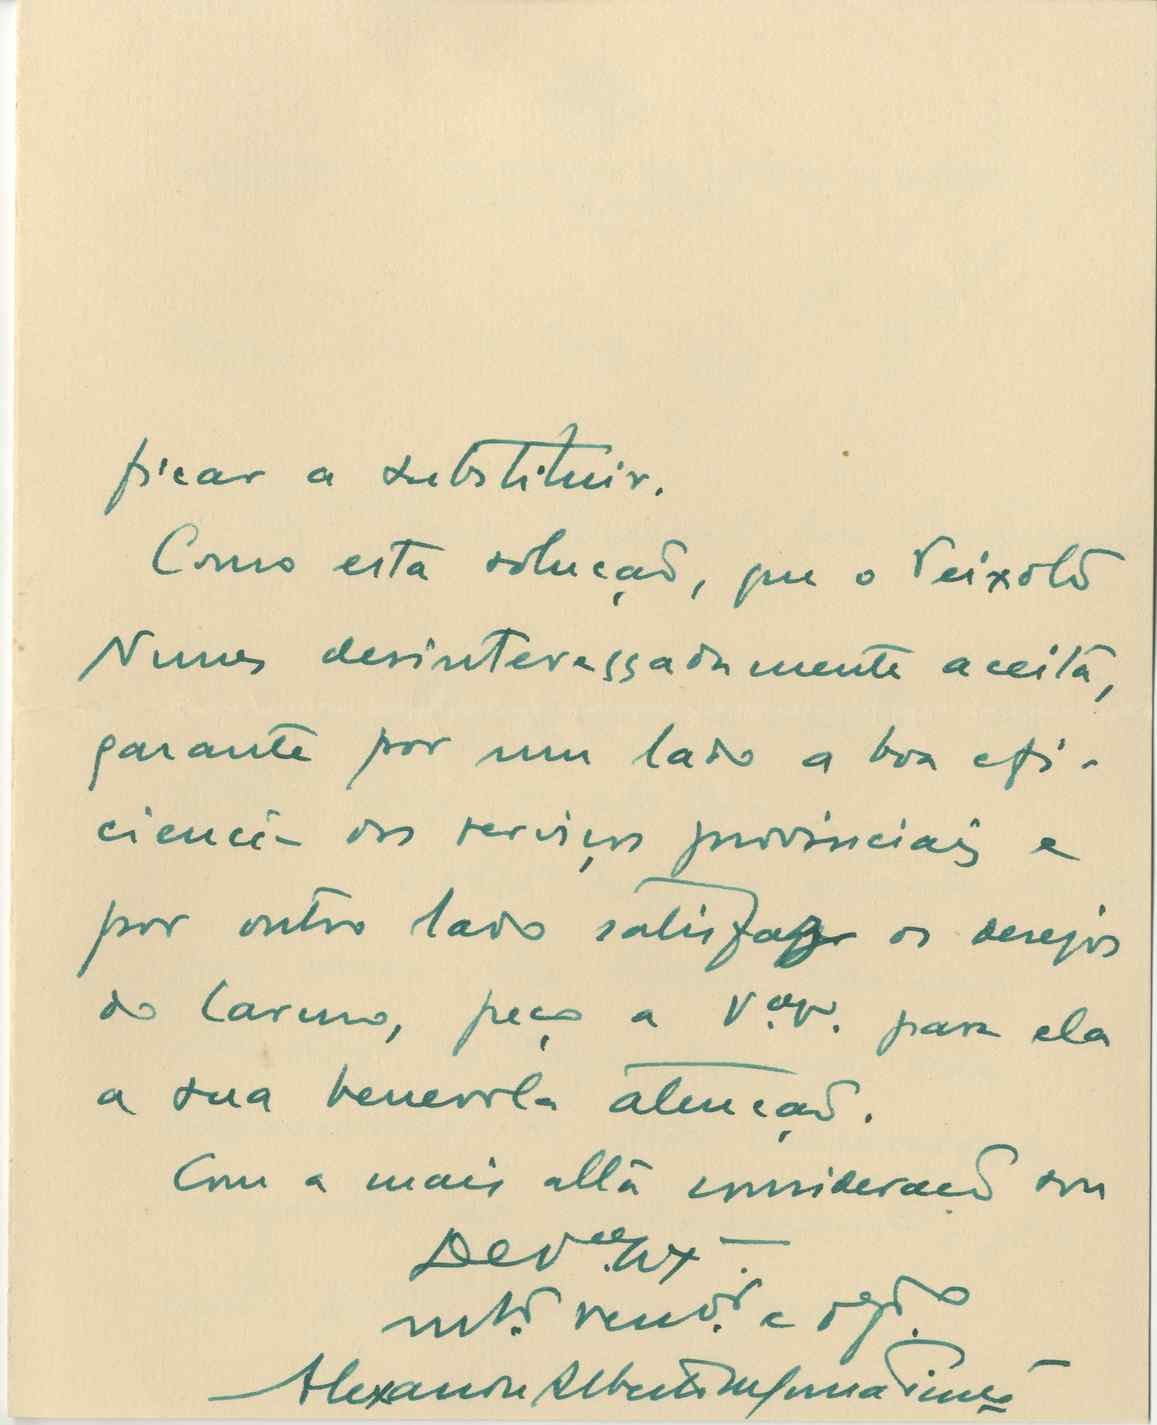 ficar a substituir.
Como esta solução, que o Peixoto
Nunes desinteressadamente aceita,
garante por um lado a boa efi-
ciencia dos serviços provinciais e
por outro lado satisfaz os desejos
do Carmo, peço a V. para ela
a sua benevola atenção.
Com a mais alta consideração sou
De V. Ex.
mtº. venor. e
Alexandre Alberto